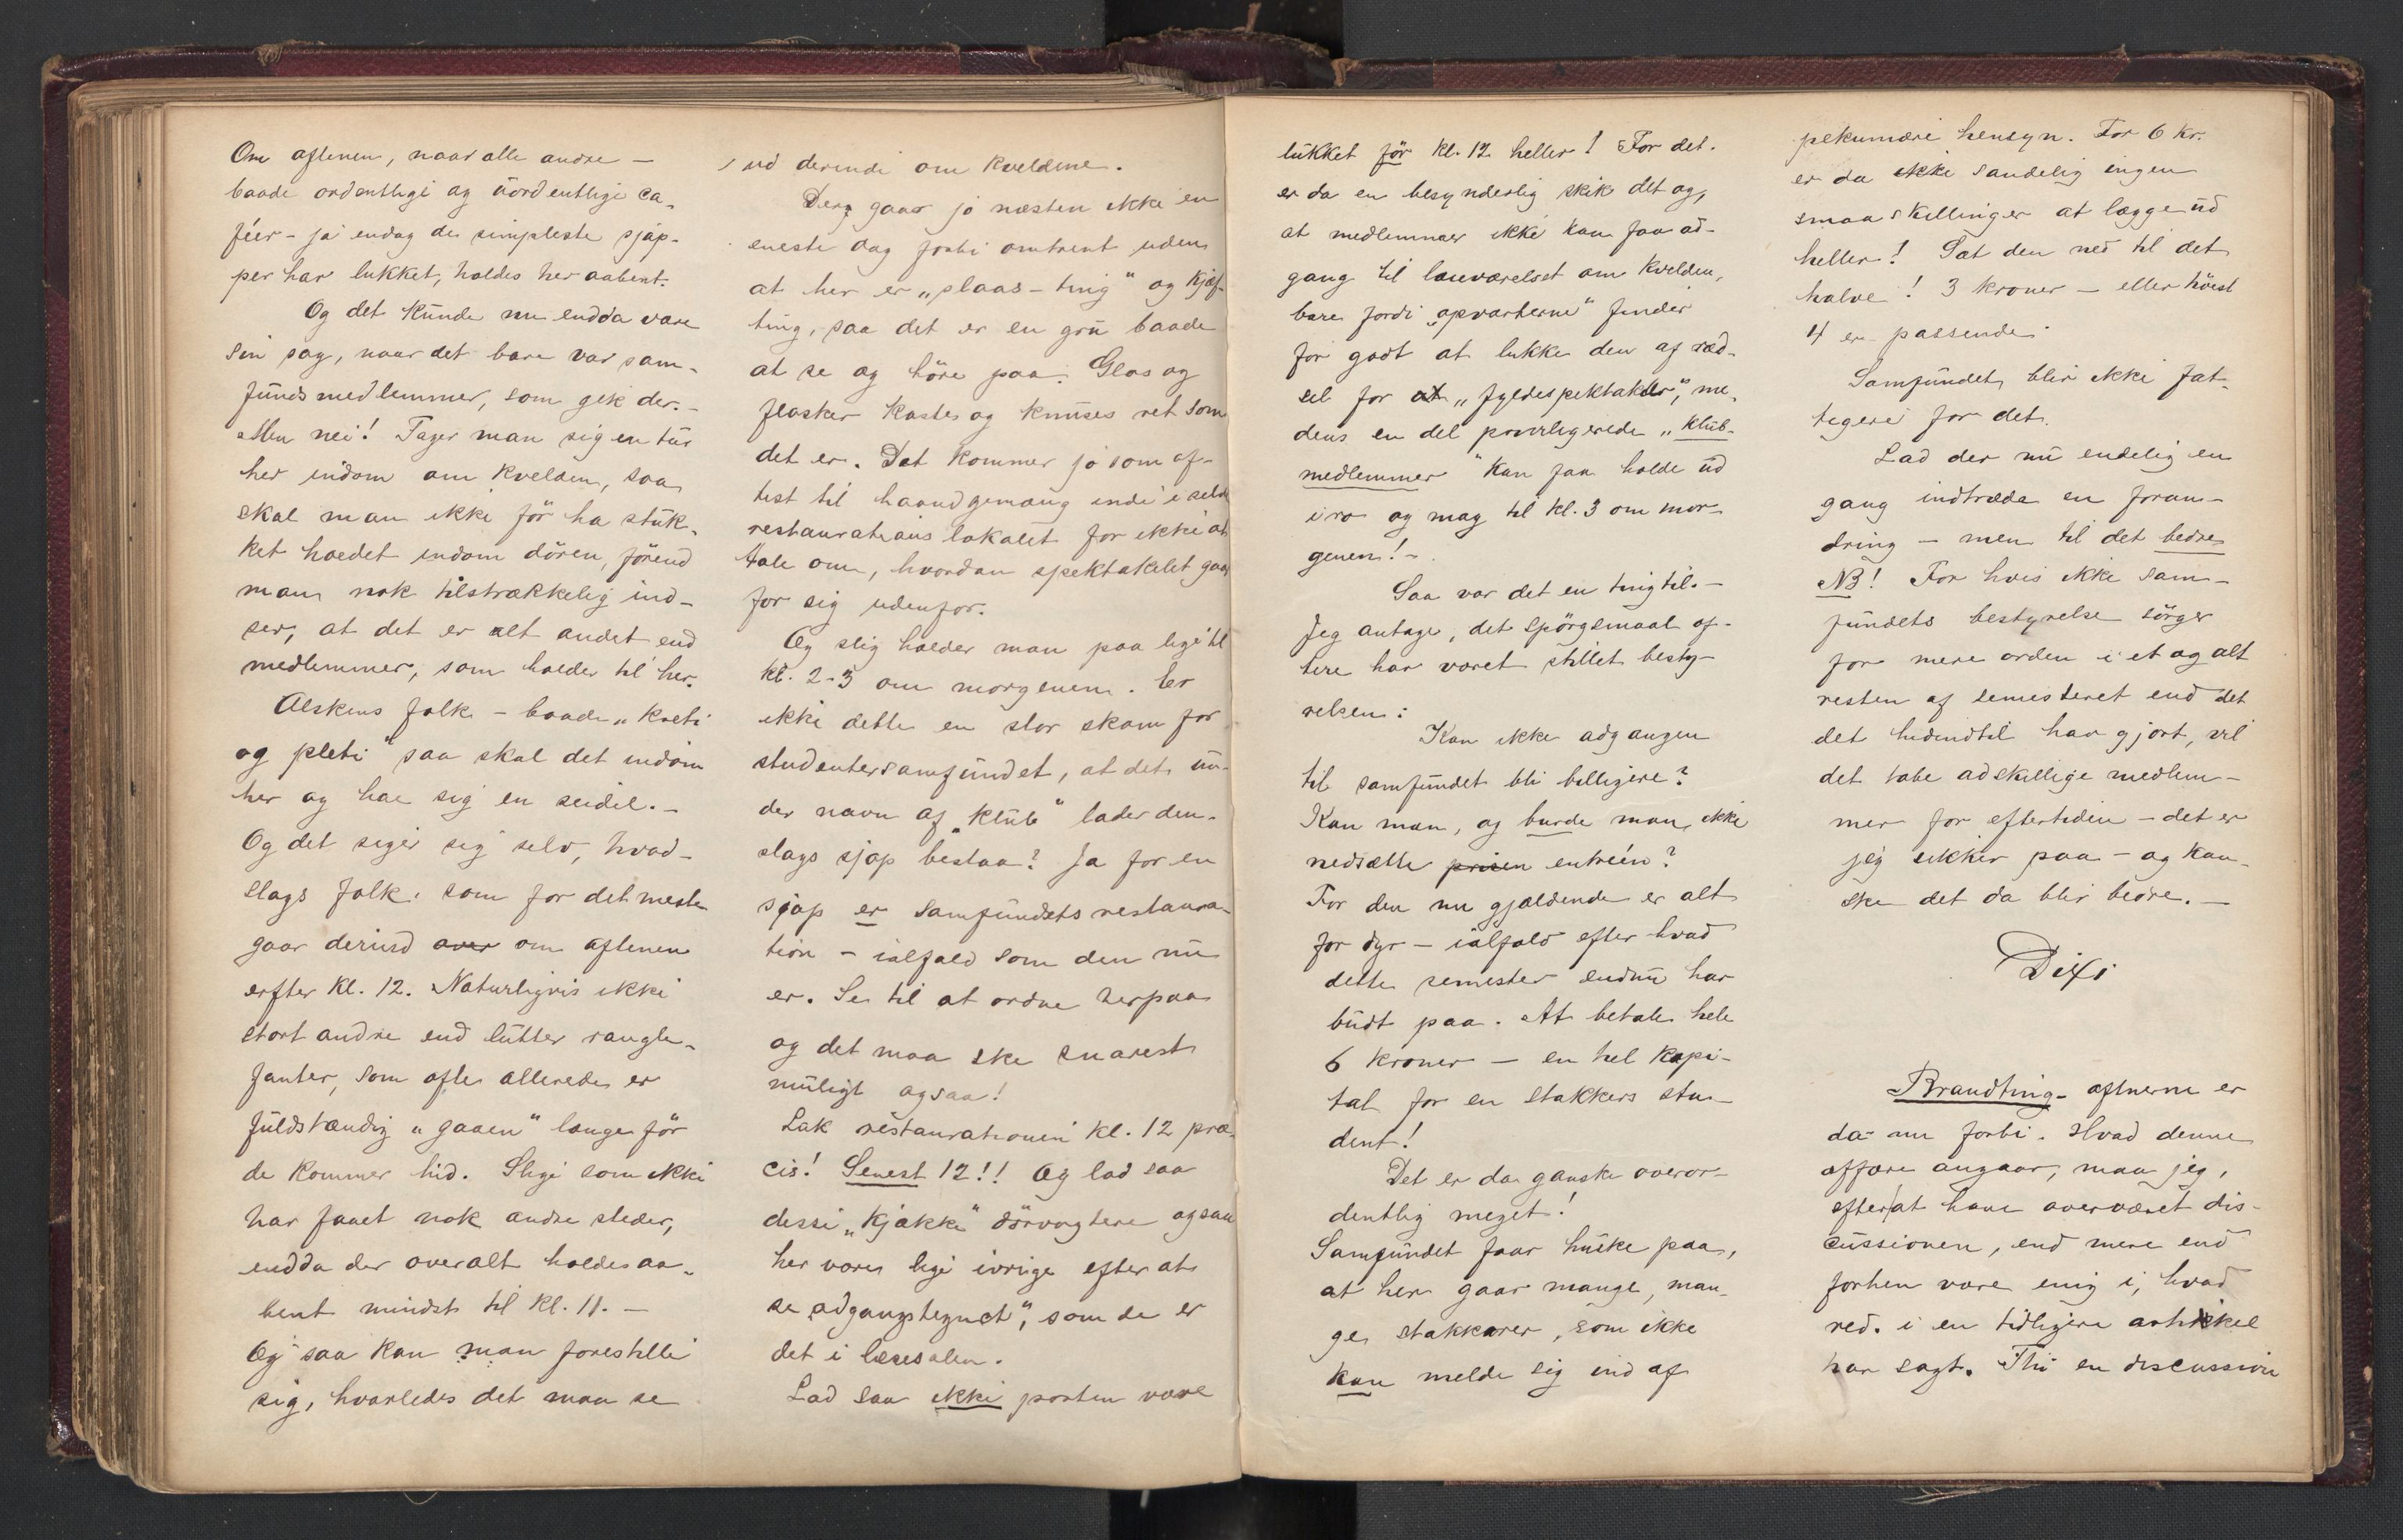 Om aftenen, naar alle andre —
baade ordentlige og uordentlige ca-
féer – ja endog de simpleste sjap-
per har lukket, holdes her aabent.
Og det kunde nu endda være
sin sag, naar det bare var sam-
fundsmedlemmer, som gik der. –
Men nei! Tager man sig en tur
her indom om kvelden, saa
skal man ikke før ha stuk-
ket hoedet indom døren, førend
man nok tilstrækkelig ind-
ser, at det er alt andet end
medlemmer, som holder til her.
Alskens folk – baade „kreti
og pleti“ saa skal det indom
her og hae sig en seidel. –
Og det siger sig selv, hvad-
slags folk som for det meste
gaar derind over om aftenen
erfter kl. 12. Naturligvis ikke
stort andre end lutter rangle-
fanter, som ofte allerede er
fuldstændig „gaaen“ længe før
de kommer hid. Slige som ikke
har faaet nok andre steder,
endda der overalt holdes aa-
bent mindst til kl. 11. —
Og saa kan man forestille
sig, hvorledes det maa se
ud derinde om kveldene.
Der gaar jo næsten ikke en
eneste dag forbi omtrent uden
at her er „slaas-ting“ og kjæf-
ting, saa det er en gru baade
at se og høre paa. Glas og
flasker kastes og knuses ret som
det er. Det kommer jo som of-
test til haandgemæng inde i selve
restaurationslokalet for ikke at
tale om, hvordan spektakelet gaar
for sig udenfor.
Og slig holder man paa lige til
kl. 2-3 om morgenen. Er
ikke dette en stor skam for
studentersamfundet, at det un-
der navn af „klub“ lader den-
slags sjap bestaa? Ja for en
sjap er samfundets restaura-
tion – ialfald som den nu
er. Se til at ordne herpaa
og det maa ske snarest
muligt ogsaa!
Luk restaurationen kl. 12 præ-
cis! Senest 12!! Og lad saa
disse „kjække“ dørvogtere ogsaa
her være lige ivrige efter at
se „adgangstegnet“, som de er
det i læsesalen.
Lad saa ikke porten være
lukket før kl. 12 heller! For det
er da en besynderlig skik det og,
at medlemmer ikke kan faa ad-
gang til læseværelset om kvelden,
bare fordi „opvarterne“ finder
for godt at lukke den af ræd-
sel for at „fyldespektakler“, me-
dens en del privilegerede „klub-
medlemmer“ kan faa holde ud
i ro og mag til kl. 3 om mor-
genen! –
Saa var det en ting til. –
Jeg antage, det spørgsmaal of-
tere har været stillet besty-
relsen:
Kan ikke adgangen
til samfundet bli billigere?
Kan man, og burde man, ikke
nedsætte prisen entréen?
For den nu gjældende er alt
for dyr – ialfald efter hvad
dette semester endnu har
budt paa. At betale hele
6 kroner — en hel kapi-
tal for en stakkers stu-
dent!
Det er da ganske overor-
dentlig meget!
Samfundet faar huske paa,
at her gaar mange, man-
ge stakkarer, som ikke
kan melde sig ind af
pekuniære hensyn. For 6 kr.
er da ikke sandelig ingen
smaaskillinger at lægge ud
heller! Sæt den ned til det
halve! 3 kroner — eller høist
4 er passende.
Samfundet blir ikke fat-
tigere for det.
Lad der nu endelig en
gang indtræde en foran-
dring – men til det bedre
NB! For hvis ikke sam-
fundets bestyrelse sørger
for mere orden i et og alt
resten af semesteret end det
det hidindtil har gjort, vil
det tabe adskillige medlem-
mer for eftertiden – det er
jeg sikker paa – og kan-
ske det da blir bedre. —
Dixi
Brandting-aftnerne er
da nu forbi. Hvad denne
affære angaar, maa jeg,
efter at have overværet dis-
cussionen, end mere end
forhen være enig i, hvad
red. i en tidligere artikkel
har sagt. Thi en discussion